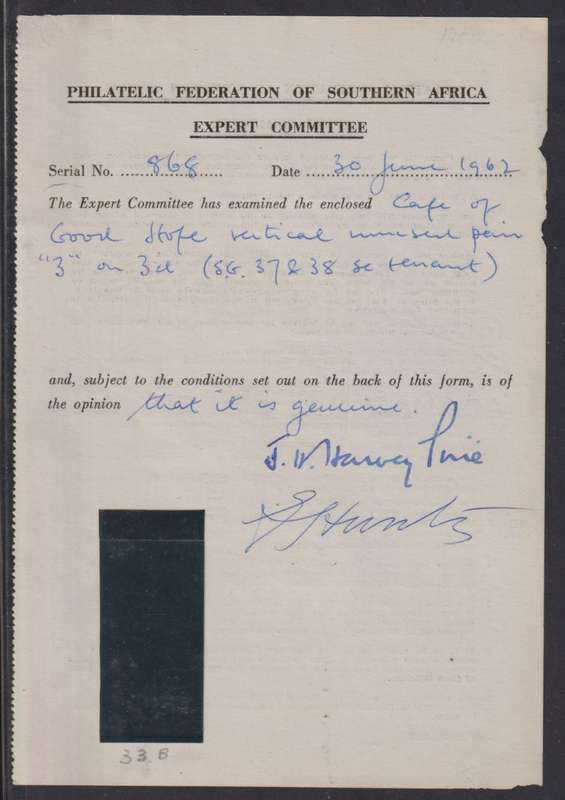 PHILATELIC FEDERATION OF SOUTHERN AFRICA
EXPERT COMMITTEE
Serial No. 868 Date 30 June 1962
The Expert Committee has examined the enclosed Cape of
Good Hope vertical unused pair
"3" on 3d (SG. 37 & 38 se tenant)
and, subject to the conditions set out on the back of this form, is of
the opinion that it is genuine.
J. H. Harvey Pirie
33 B